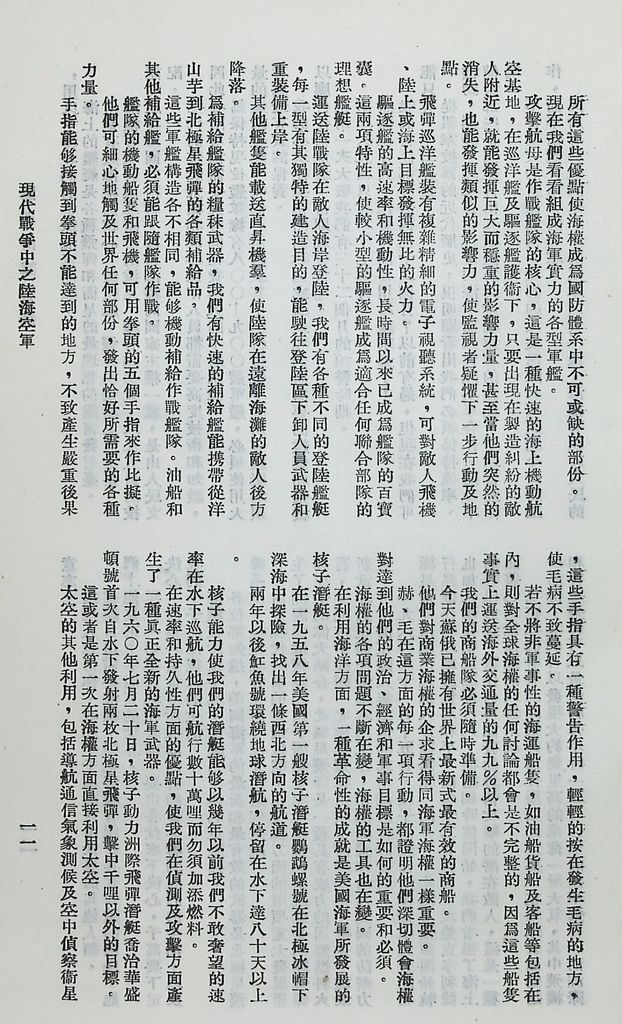 所有這些優點使海權成爲國防體系中不可或缺的部份。
現在我們看看組成海軍實力的各型軍艦。
攻擊航母是作戰艦隊的核心，這是一種快速的海上機動航
空基地，在巡洋艦及驅逐艦護衞下，只要出現在製造糾紛的敵
人附近，就能發揮巨大而穩重的影響力量，甚至當他們突然的
消失，也能發揮類似的影響力，使監視者疑懼下一步行動及地
點。
飛彈巡洋艦裝有複雜精細的電子視聽系統，可對敵人飛機
、陸上或海上目標發揮無比的火力。
驅逐艦的高速率和機動性，長時間以來已成爲艦隊的百寶
囊。這兩項特性，使較小型的驅逐艦成爲適合任何聯合部隊的
理想艦艇。
運送陸戰隊在敵人海岸登陸，我們有各種不同的登陸艦艇
，每一型有其獨特的建造目的，能駛往登陸區下卸人員武器和
重裝備上岸。
其他艦隻能載送直昇機羣，使陸隊在遠離海灘的敵人後方
降落。
爲補給艦隊的糧秣武器，我們有快速的補給艦能携帶從洋
山芋到北極星飛彈的各類補給品。
這些軍艦構造各不相同，能够機動補給作戰艦隊。油船和
其他補給艦，必須能跟隨艦隊作戰。
艦隊的機動船隻和飛機，可用拳頭的五個手指來作比擬。
他們可細心地觸及世界任何部份，發出恰好所需要的各種
力量。
手指能够接觸到拳頭不能達到的地方，不致產生嚴重後果
，這些手指具有一種警告作用，輕輕的按在發生毛病的地方，
使毛病不致蔓延。
若不將非軍事性的海運船隻，如油船貨船及客船等包括在
內，則對全球海權的任何討論都會是不完整的，因爲這些船隻
事實上運送海外交通量的九九％以上。
我們的商船隊必須隨時準備。
今天蘇俄已擁有世界上最新式最有效的商船。
他們對商業海權的企求看得同海軍海權一樣重要。
赫、毛在這方面的每一項行動，都證明他們深切體會海權
對達到他們的政治、經濟和軍事目標是如何的重要和必須。
海權的各項問題不斷在變，海權的工具也在變。
在利用海洋方面，一種革命性的成就是美國海軍所發展的
核子潛艇。
在一九五八年美國第一艘核子潛艇鸚鵡螺號在北極冰帽下
深海中探險，找出一條西北方向的航道。
兩年以後魟魚號環繞地球潛航，停留在水下達八十天以上
。
核子能力使我們的潛艇能够以幾年以前我們不敢奢望的速
率在水下巡航，他們可航行數十萬哩而勿須加添燃料。
在速率和持久性方面的優點，使我們在偵測及攻擊方面產
生了一種真正全新的海軍武器。
一九六〇年七月二十日，核子動力洲際飛彈潛艇喬治華盛
頓號首次自水下發射兩枚北極星飛彈，擊中千哩以外的目標。
這或者是第一次在海權方面直接利用太空。
太空的其他利用，包括導航通信氣象測候及空中偵察衞星
現代戰爭中之陸海空軍
一一